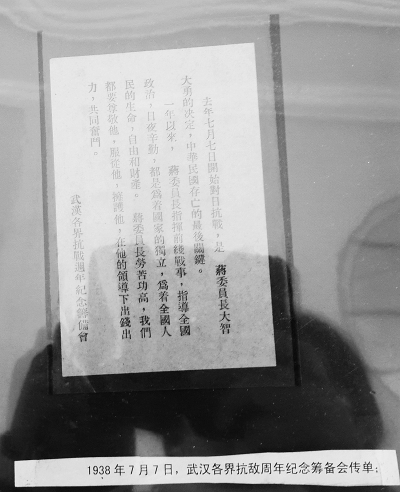 去年七月七日開始對日抗戰，是　蔣委員長大智
大勇的決定，中華民國存亡的最後關鍵。
一年以來，　蔣委員長指揮前綫戰事，指導全國
政治，日夜辛勤，都是爲着國家的獨立，爲着全國人
民的生命，自由和財產。　蔣委員長勞苦功高，我們
都要尊敬他，服從他，擁護他，在他的領導下出錢出
力，共同奮鬥。
武漢各界抗戰週年紀念籌備會
1938年7月7日，武汉各界抗敌周年纪念筹备会传单；